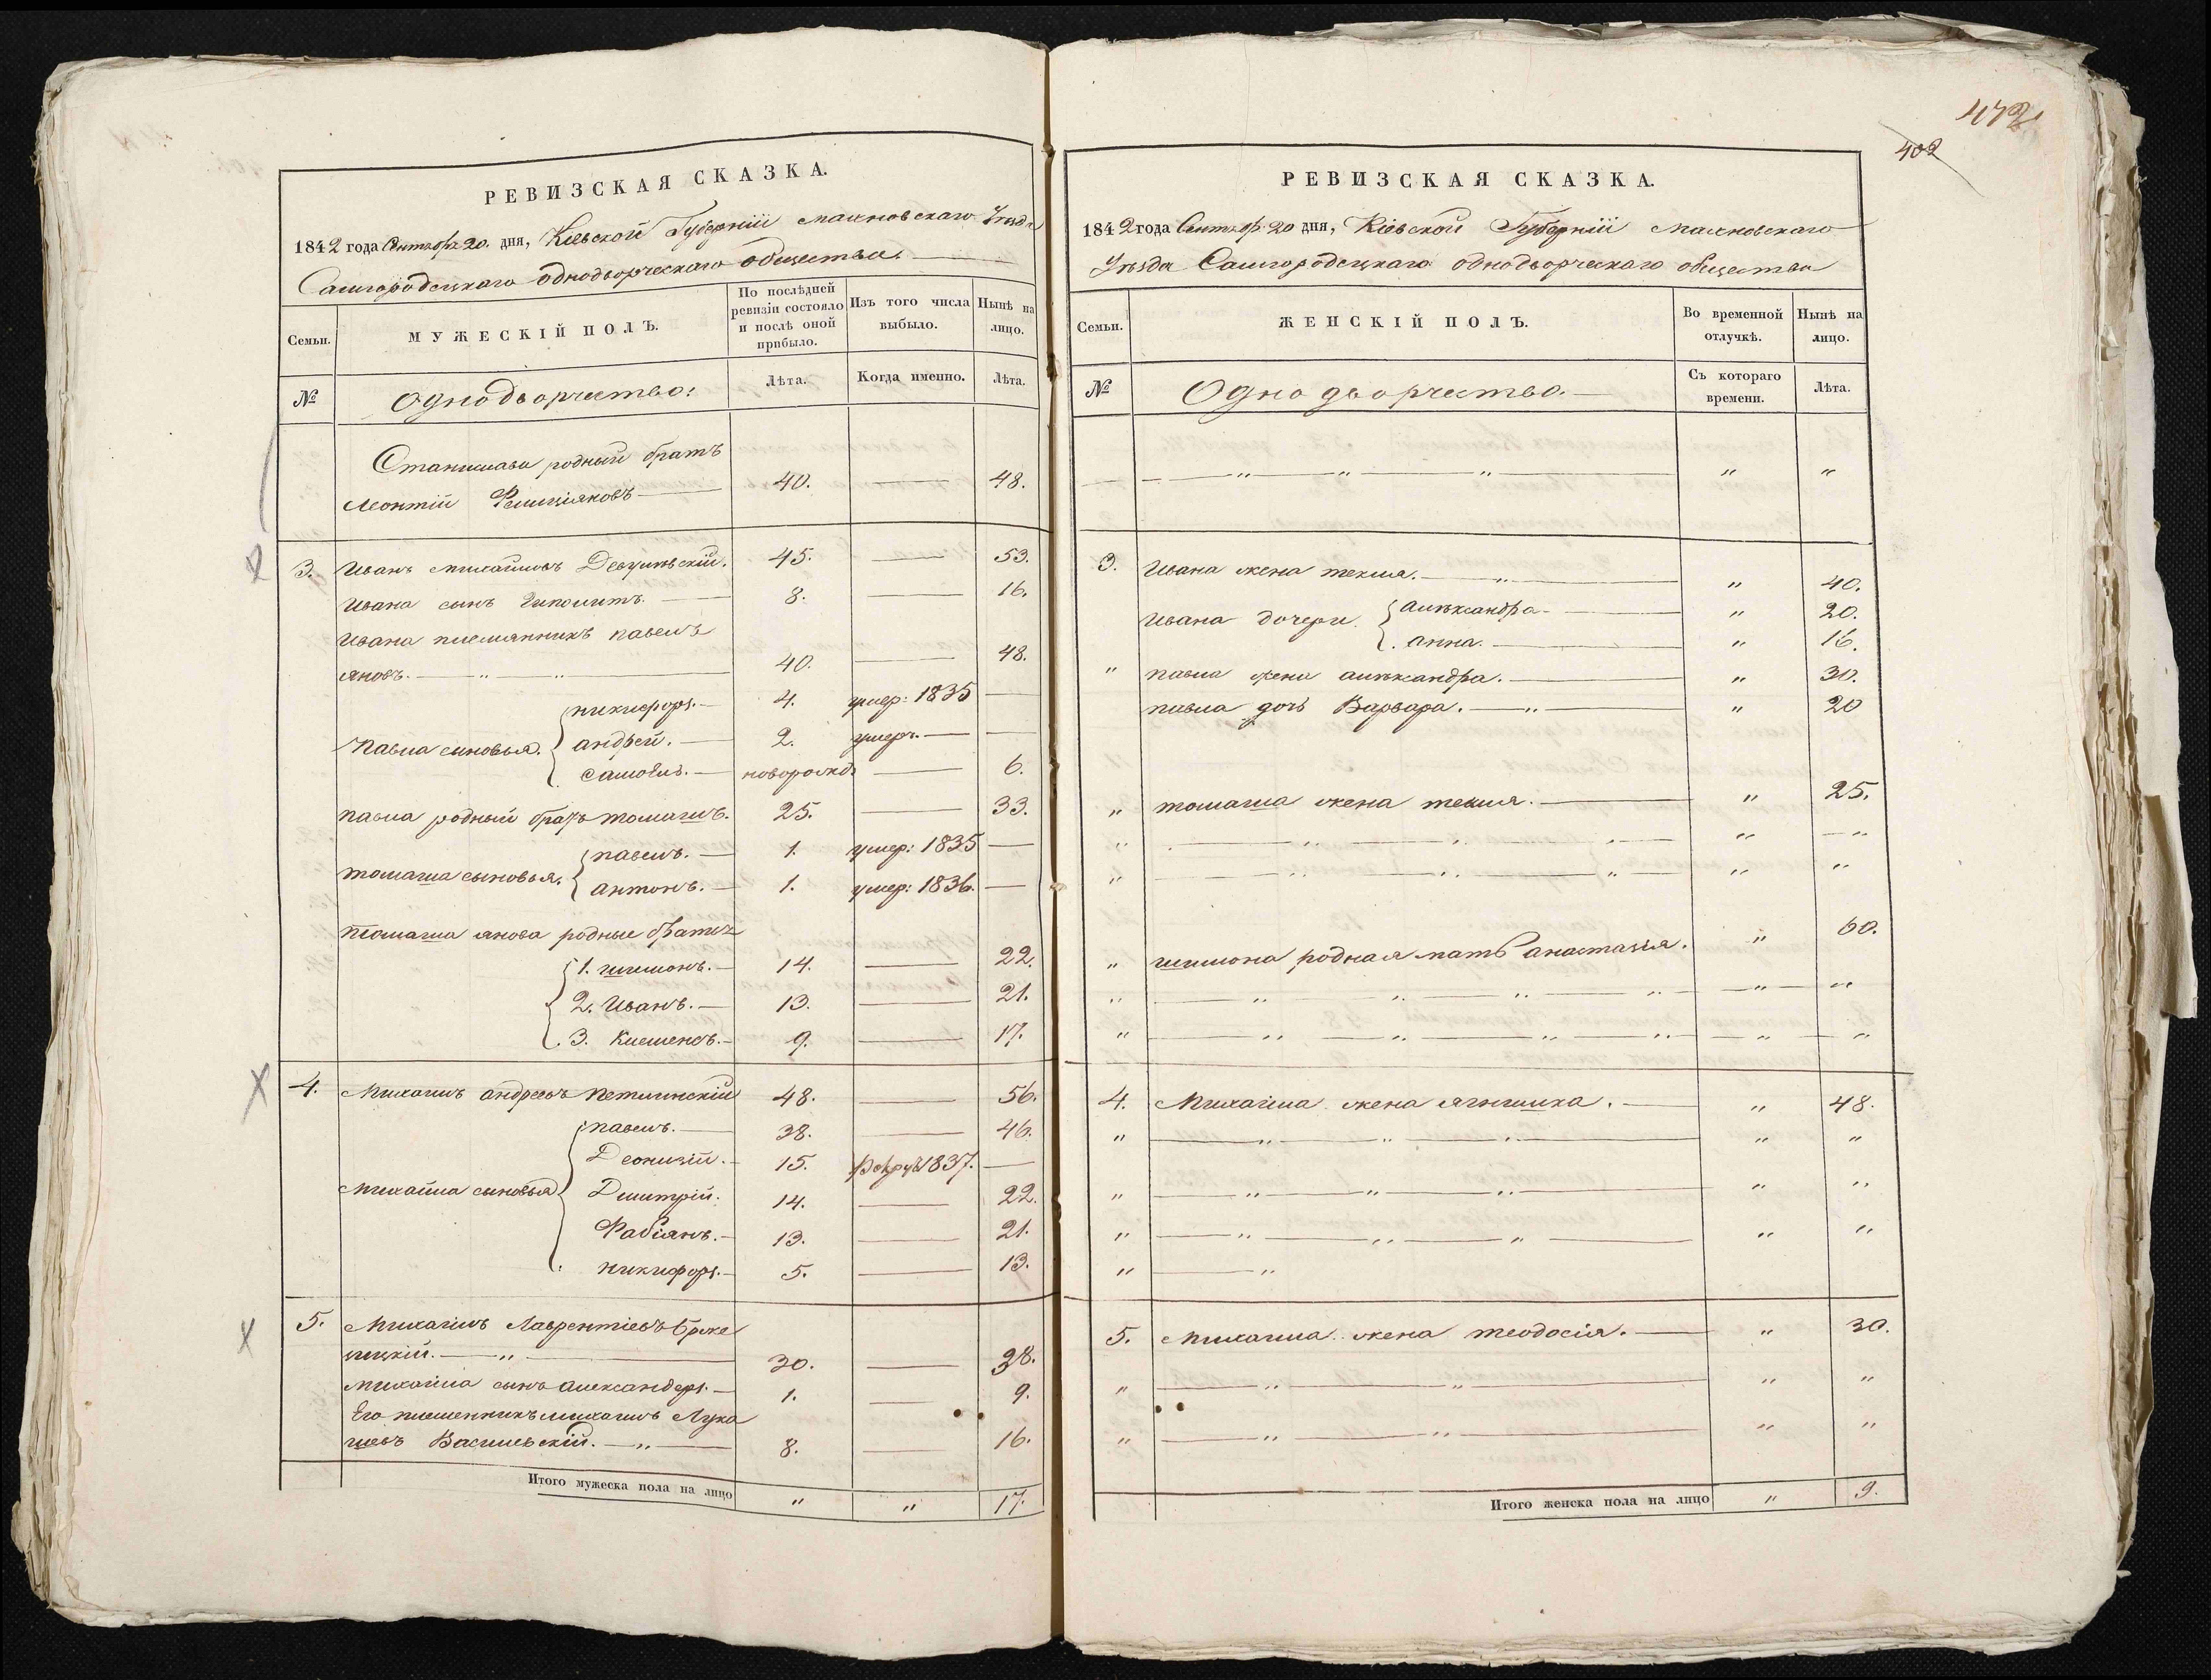 РЕВИЗСКАЯ СКАЗКА.
1842 года Сентября 20. дня, Кіевской Губерніи Махновскаго Уезда
Самгородецкаго однодворческаго общества.
Семьи.
МУЖЕСКІЙ ПОЛЪ.
По послѣдней ревизіи состояло и послѣ оной прибыло.
Изъ того числа выбыло.
Нынѣ на лицо.
№
Однодворчество:
Лѣта.
Когда именно.
Лѣта.
Станислава родный братъ
Леонтій Фелиціяновъ 40. 48.
3. Иванъ Михайловъ 45. 53.
Ивана сынъ Ипполитъ. 8. 16.
Ивана племянникъ павелъ
яновъ. 40. 48.
Павла сыновья.
никифоръ. 4. умер: 1835
андрей. 2. умеръ.
Самоилъ. новорожд. 6.
павла родный братъ томашъ. 25. 33.
томаша сыновья.
павелъ. 1. умер: 1835
антонъ. 1. умер: 1836.
томаша янова родные братья
1. шимонъ. 14. 22.
2. Иванъ. 13. 21.
3. Клеменсъ. 9. 17.
4. Михаилъ андреевъ 48. 56.
Михайла сыновья
павелъ. 38. 46.
Деонизій. 15. 1837.
Дмитрій. 14. 22.
Фабіянъ. 13. 21.
никифоръ. 5. 13.
5. Михаилъ Лаврентіевъ Брже
30. 38.
Михайла сынъ Александеръ. 1. 9.
Его племенникъ михаилъ Лука
шевъ Василевскій. 8. 16.
Итого мужеска пола на лицо " " 17.
472
402
РЕВИЗСКАЯ СКАЗКА.
1842 года Сентябр. 20 дня, Кіевской Губерніи Махновскаго
Уезда Самгородецкаго однодворческаго общества
Семьи.
ЖЕНСКІЙ ПОЛЪ.
Во временной отлучкѣ.
Нынѣ на лицо.
№
Однодворчество.
Съ котораго времени.
Лѣта.
3. Ивана жена текля. " 40.
Ивана дочери.
Александра " 20.
анна. " 16.
" павла жена александра. " 30.
павла дочь Варвара. " 20
" томаша жена текля. " 25.
" шимона родная мать анастазія. " 60.
4. Михайла жена ягнишка. " 48.
5. Михаила жена теодосія. " 30.
Итого женска пола на лицо " 9.